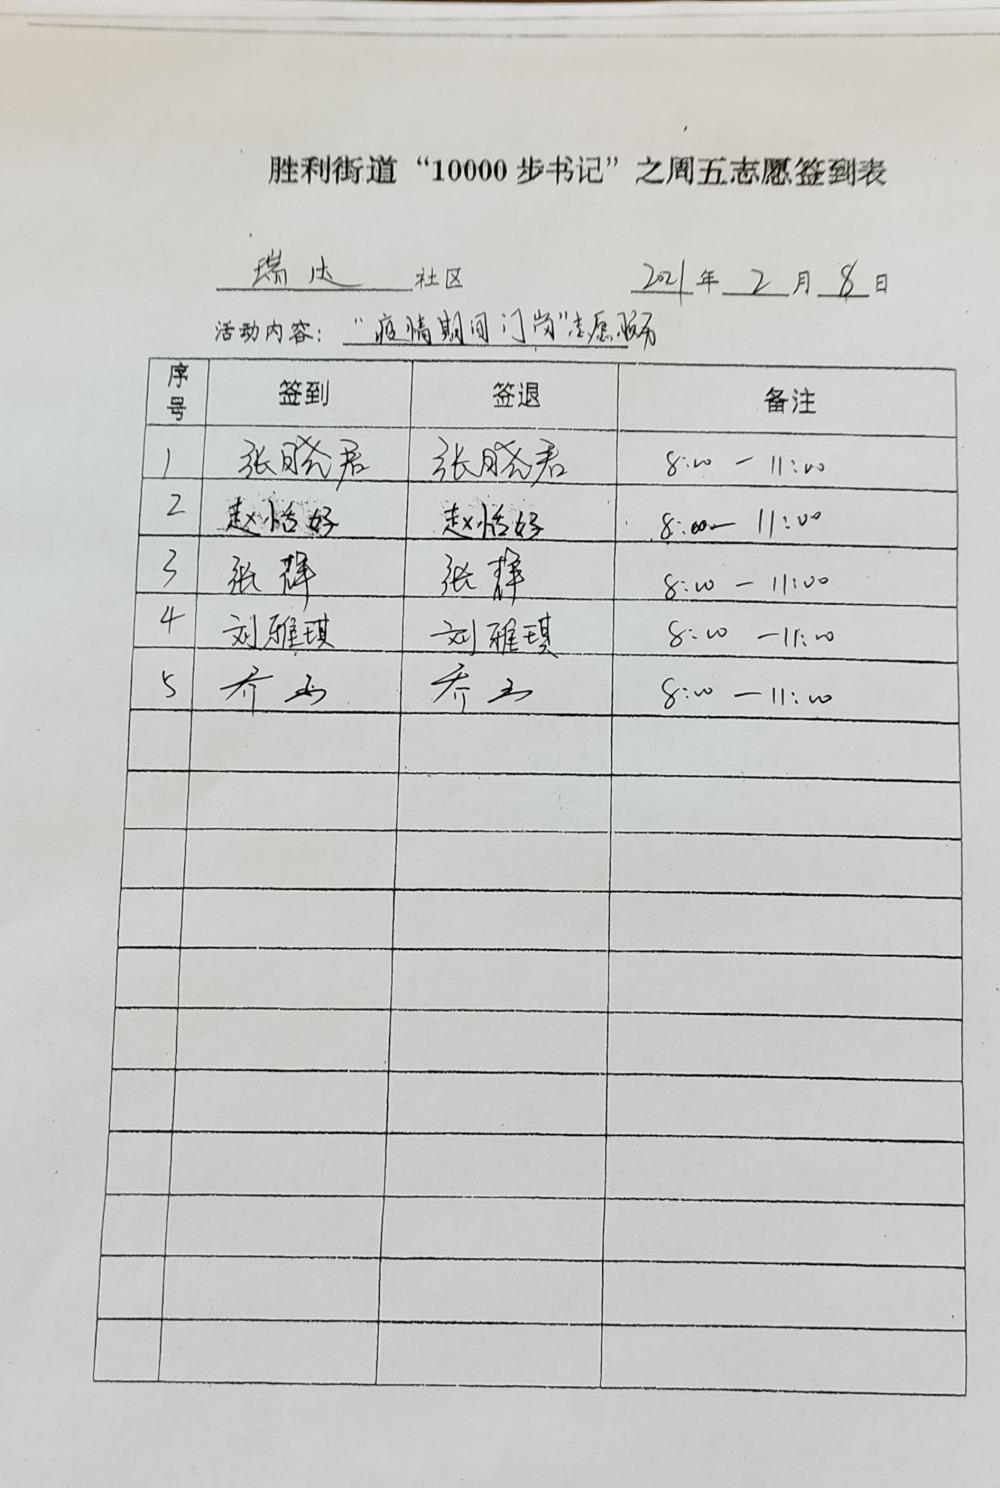 胜利街道“10000步书记”之周五志愿签到表
瑞达社区 2021年2月8日
活动内容：“疫情期间门岗”志愿服务
序号 签到 签退 备注
1 张晓君 张晓君 8:00—11:00
2 赵恬好 赵恬好 8:00—11:00
3 张群 张群 8:00—11:00
4 刘雅琪 刘雅琪 8:00—11:00
5 乔玉 乔玉 8:00—11:00